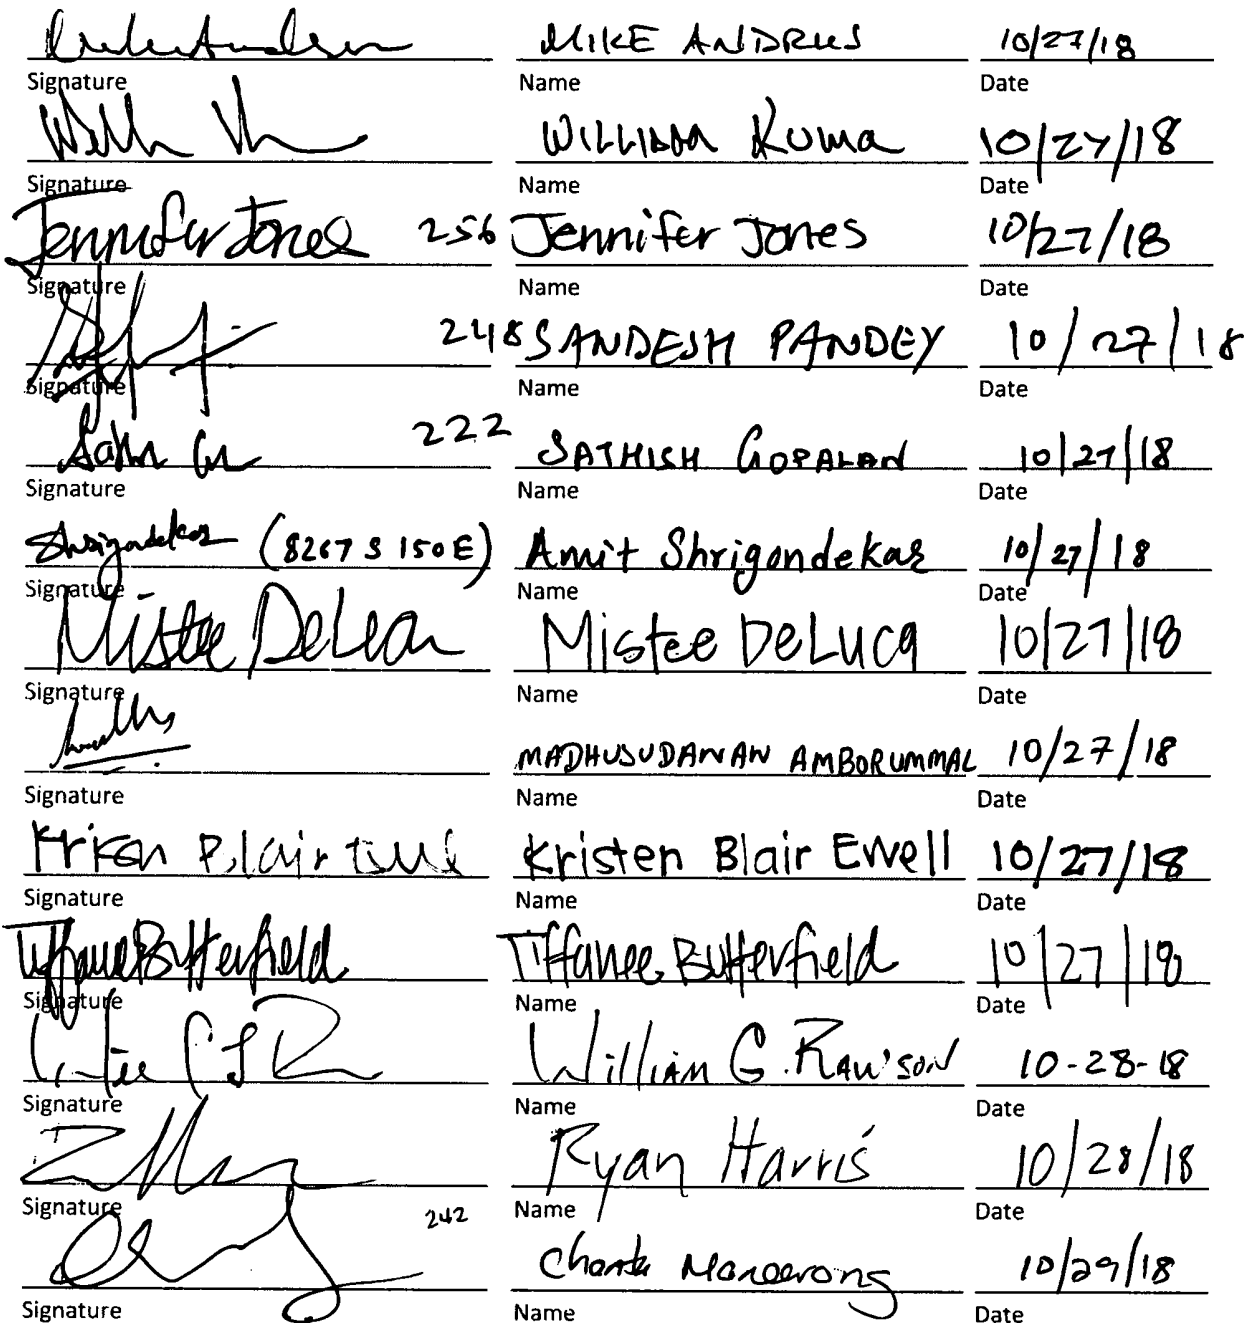 MIKE ANDRUS 10/27/18
Signature Name Date
WILLIAM Kuma 10/27/18
Signature Name Date
Jennifer Jones 256 Jennifer Jones 10/27/18
Signature Name Date
248 SANDESH PANDEY 10/27/18
Signature Name Date
222 SATHISH GOPALAN 10/27/18
Signature Name Date
Shrigondekar (8267 S 150 E) Amit Shrigondekar 10/27/18
Signature Name Date
Mistee DeLuca Mistee DeLuca 10/27/18
Signature Name Date
MADHUSUDANAN AMBORUMMAL 10/27/18
Signature Name Date
Blair Kristen Blair Ewell 10/27/18
Signature Name Date
Tiffanee Butterfield Tiffanee Butterfield 10/27/18
Signature Name Date
William G. Rawson 10-28-18
Signature Name Date
Ryan Harris 10/28/18
Signature Name Date
242 10/29/18
Signature Name Date